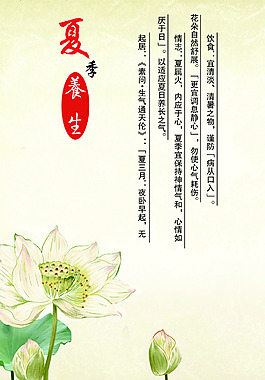 夏季養生
起居:《素问·生气通天伦》:「夏三月:夜卧早起,无
厌于日」。以适应夏日养长之气。
情志:夏属火、内应于心,夏季宜保持神情气和,心情如
花朵自然舒展。「更宜调息静心」,勿使心气耗伤。
饮食:宜清淡、清暑之物,谨防「病从口入」。